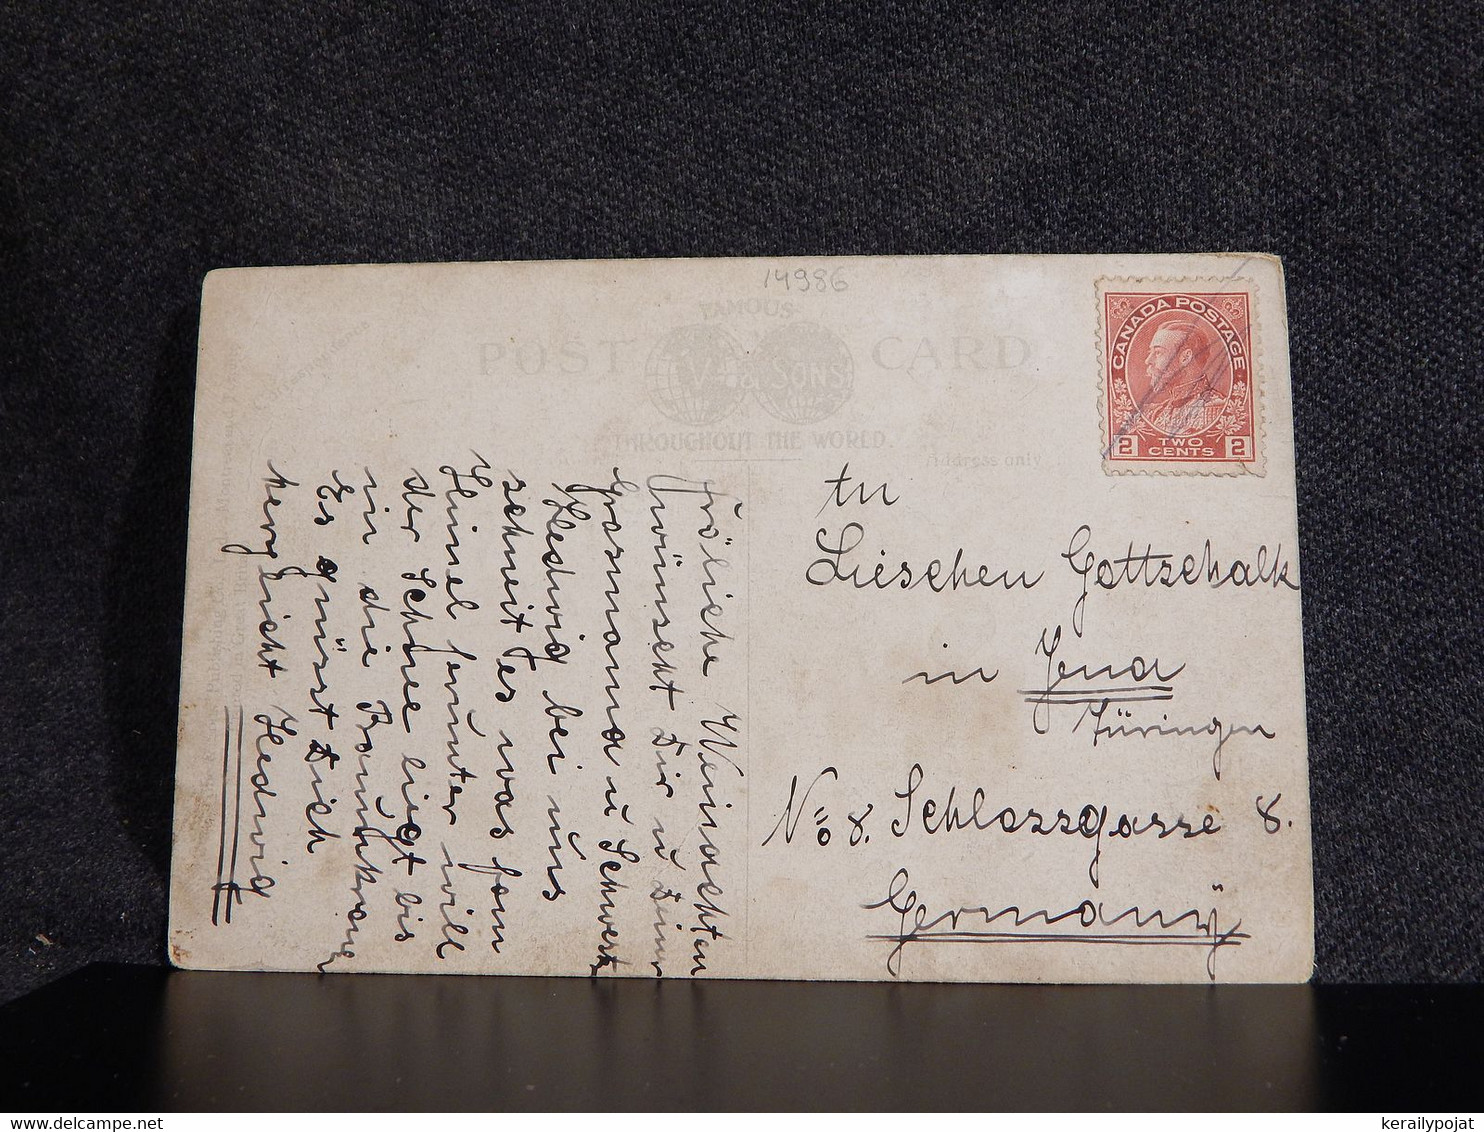 14986
FAMOUS
POST CARD
V & SONS
THROUGHOUT THE WORLD.
Address only
Correspondence
CANADA POSTAGE
2 TWO CENTS 2
An
Lieschen Gottschalk
in Jena
Türingen
No 8. Schlossgasse 8.
Germany
Fröliche Weinachten
wünscht Dir u Deiner
Grosmama u Schwest
Hedwig bei uns
schneit es was fom
Himel ferunter will
der Schnee liegt bis
in die
Es grüst Dich
herzlicht Hedwig
kerailypojat